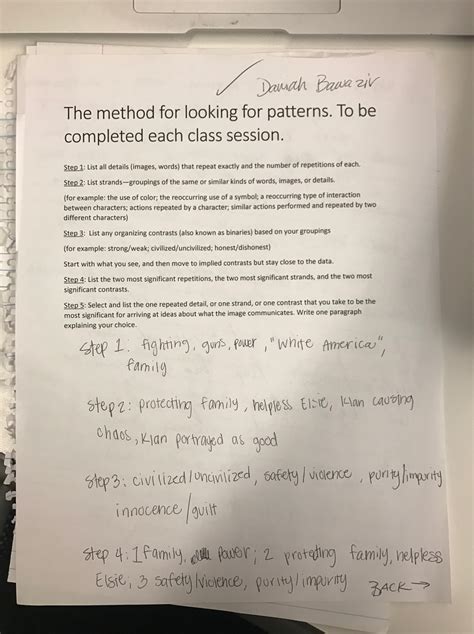 Damah Bawazir
The method for looking for patterns. To be
completed each class session.
Step 1: List all details (images, words) that repeat exactly and the number of repetitions of each.
Step 2: List strands—groupings of the same or similar kinds of words, images, or details.
(for example: the use of color; the reoccurring use of a symbol; a reoccurring type of interaction
between characters; actions repeated by a character; similar actions performed and repeated by two
different characters)
Step 3: List any organizing contrasts (also known as binaries) based on your groupings
(for example: strong/weak; civilized/uncivilized; honest/dishonest)
Start with what you see, and then move to implied contrasts but stay close to the data.
Step 4: List the two most significant repetitions, the two most significant strands, and the two most
significant contrasts.
Step 5: Select and list the one repeated detail, or one strand, or one contrast that you take to be the
most significant for arriving at ideas about what the image communicates. Write one paragraph
explaining your choice.
Step 1: fighting, guns, power, "White America",
family
Step 2: protecting family, helpless Elsie, Klan causing
chaos, Klan portrayed as good
Step 3: civilized/uncivilized, safety/violence, purity/impurity
innocence/guilt
Step 4: 1 family, power; 2 protecting family, helpless
Elsie; 3 safety/violence, purity/impurity
BACK →